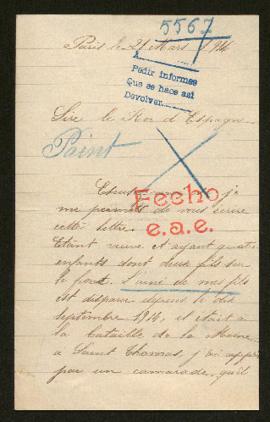 5567
Paris le 21 Mars 1916
A
Pedir informes
Que se hace asi
Devolver
Sire le Roi d'Espagne
Paint
je
Fecho
me permets de vous écrire
cette lettre.
e.a.e.
Etant veuve et ayant quatre
enfants dont deux fils sur
le front. L'ainé de mes fils
est disparu depuis le dix
septembre 1914, il était à
la bataille de la Marne
a Saint Thomas, j'ai appris
par un camarade, qu'il